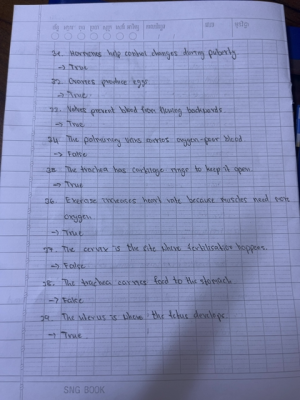 21. Hormones help control changes during puberty.
→ True
22. Ovaries produce eggs.
→ True
23. Valves prevent blood from flowing backwards
→ True
24. The pulmonary veins carries oxygen-poor blood
→ False
25. The trachea has cartilage rings to keep it open.
→ True
26. Exercise increases heart rate because muscles need more
oxygen.
→ True
27. The cervix is the site where fertilisation happens.
→ False
28. The trachea carries food to the stomach
→ False
29. The uterus is where the fetus develops.
→ True
SNG BOOK